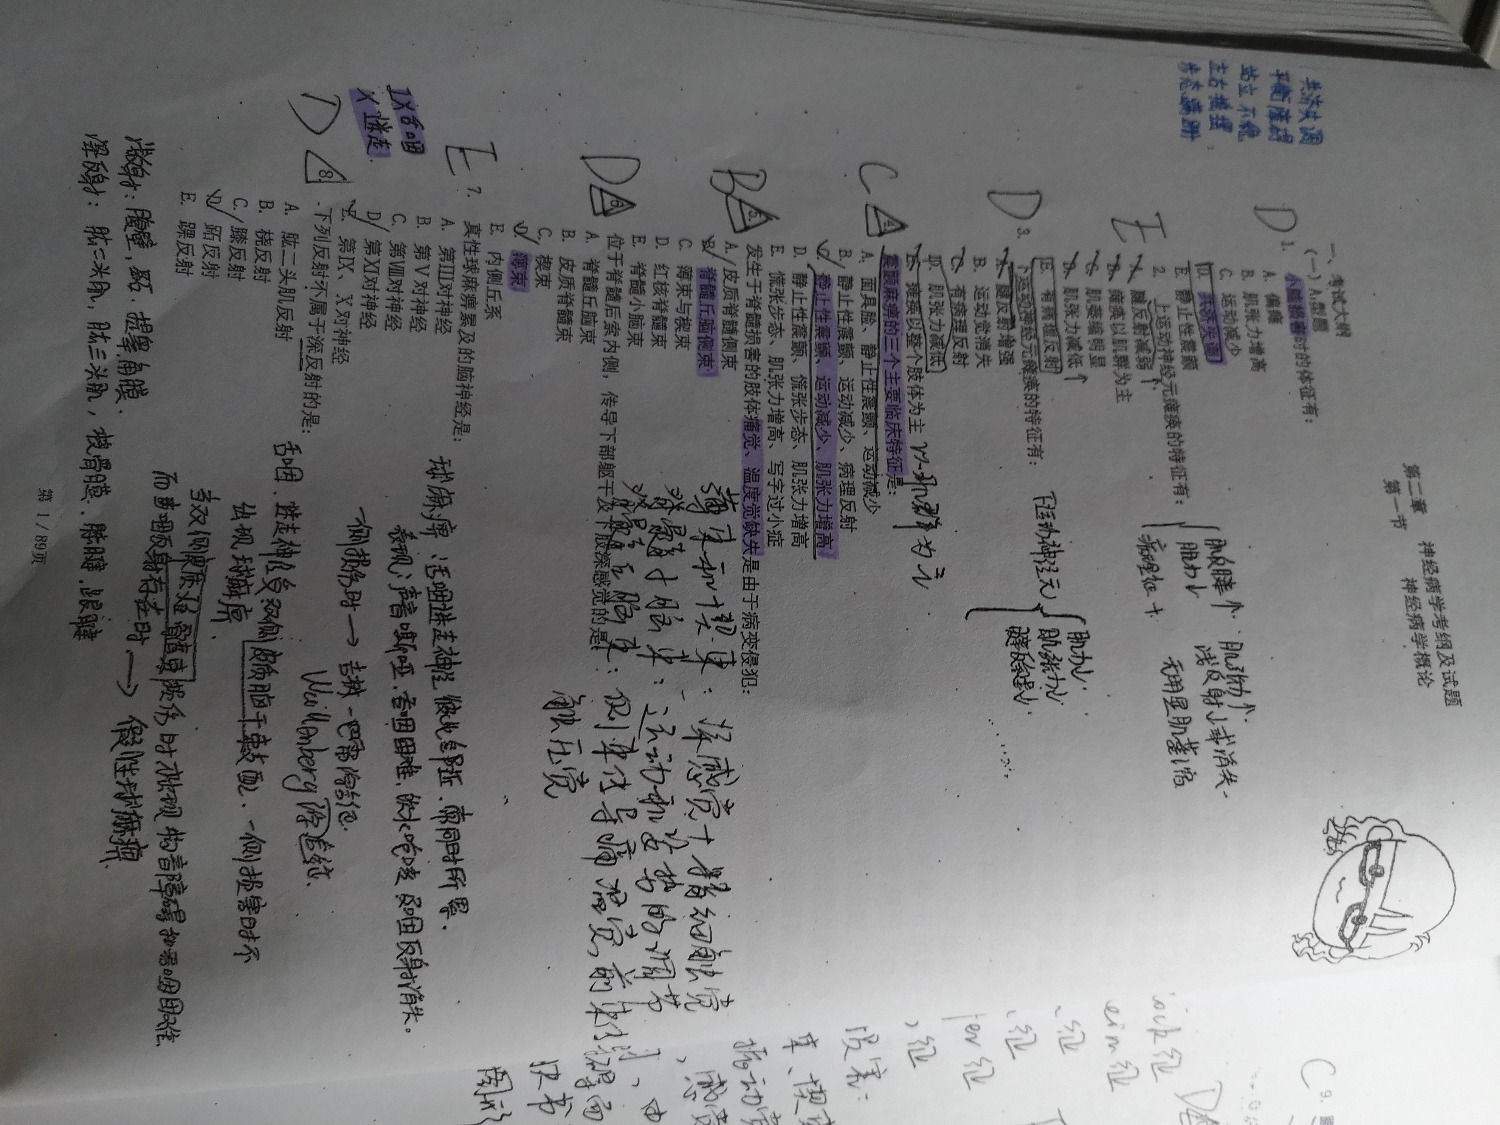 第二章 神经病学考纲及试题
第一节 神经病学概论
一、考试大纲
（一）A₁型题
共济失调
平衡障碍
站立不稳
左右摇摆
步态蹒跚
D
1. 小脑损害时的体征有：
A. 偏瘫
B. 肌张力增高
C. 运动减少
D. 共济失调
E. 静止性震颤
E
2. 上运动神经元瘫痪的特征有：
A. 腱反射减弱↑
B. 瘫痪以肌群为主
C. 肌萎缩明显
D. 肌张力减低↑
E. 有病理反射
肌张力↑
肌力↓
浅反射↓或消失
病理征+
无明显肌萎缩
D
3. 下运动神经元瘫痪的特征有：
A. 腱反射增强
B. 运动觉消失
C. 有病理反射
D. 肌张力减低
E. 瘫痪以整个肢体为主 以肌群为主
下运动神经元
肌力↓
肌张力↓
腱反射↓
C
4. 震颤麻痹的三个主要临床特征是：
A. 面具脸、静止性震颤、运动减少
B. 静止性震颤、运动减少、病理反射
C. 静止性震颤、运动减少、肌张力增高
D. 静止性震颤、慌张步态、肌张力增高
E. 慌张步态、肌张力增高、写字过小症
B
5. 发生于脊髓损害的肢体痛觉、温度觉缺失是由于病变侵犯：
A. 皮质脊髓侧束
B. 脊髓丘脑侧束
C. 薄束与楔束
D. 红核脊髓束
E. 脊髓小脑束
薄束和楔束：深感觉+精细触觉
脊髓小脑束：运动和姿势的调节
脊髓丘脑束：侧束传导痛温觉，前束传导
触压觉
D
6. 位于脊髓后索内侧，传导下部躯干及下肢深感觉的是：
A. 脊髓丘脑束
B. 皮质脊髓束
C. 楔束
D. 薄束
E. 内侧丘系
E
7. 真性球麻痹累及的脑神经是：
A. 第Ⅲ对神经
B. 第Ⅴ对神经
C. 第Ⅷ对神经
D. 第Ⅺ对神经
E. 第Ⅸ、Ⅹ对神经
IX舌咽
X 迷走
球麻痹：舌咽迷走神经彼此邻近，常同时所累。
表现：声音嘶哑、吞咽困难、饮水呛咳及咽反射消失。
一侧损伤时→吉兰-巴雷综合征
Wallenberg综合征。
舌咽、迷走神经受双侧皮质脑干束支配，一侧损害时不
出现球麻痹
当双侧皮质延髓束损伤时才出现构音障碍和吞咽困难
而咽反射存在时→假性球麻痹
D
8. 下列反射不属于深反射的是：
A. 肱二头肌反射
B. 桡反射
C. 膝反射
D. 跖反射
E. 踝反射
浅反射：腹壁，跖，提睾，角膜.
深反射：肱二头肌，肱三头肌，桡骨膜，膝腱，跟腱
第 1 / 89页
C 9.